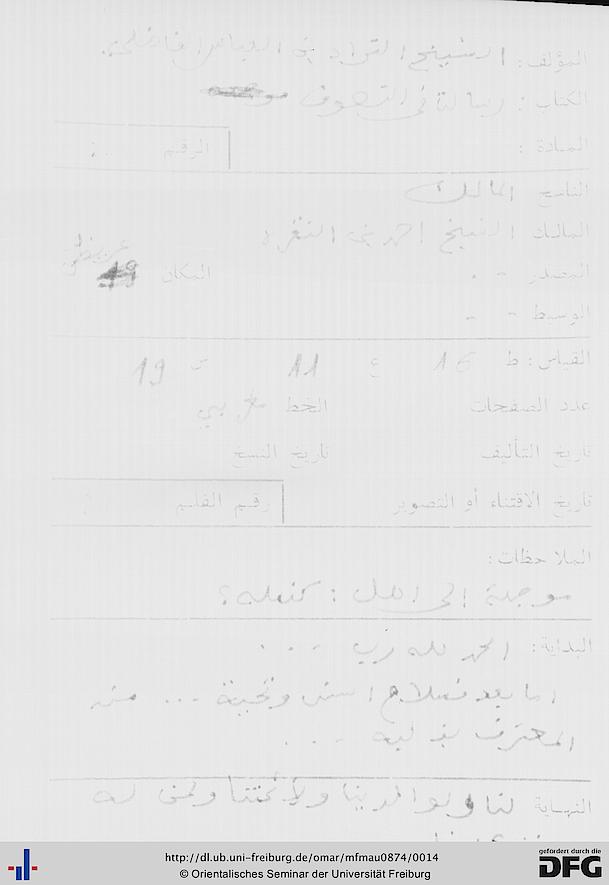 المؤلف: الشيخ التراد بن العباس
الكتاب: رسالة في التصوف
المادة: الرقم
الناسخ المالك
المالك الشيخ احمد بن
المصدر - . المكان
الوسيط - -
القياس: ط 16 ع 11 س 19
عدد الصفحات الخط مغربي
تاريخ التأليف تاريخ النسخ
تاريخ الاقتناء أو التصوير رقم الفلم
الملاحظات:
موجهة إلى اهل:
البداية: الحمد لله رب ...
اما بعد فسلام اسنى وتحية ... من
المعترف بذنبه ...
النهاية لنا ولوالدينا ولأئمتنا ولمن له
http://dl.ub.uni-freiburg.de/omar/mfmau0874/0014
© Orientalisches Seminar der Universität Freiburg
gefördert durch die
DFG